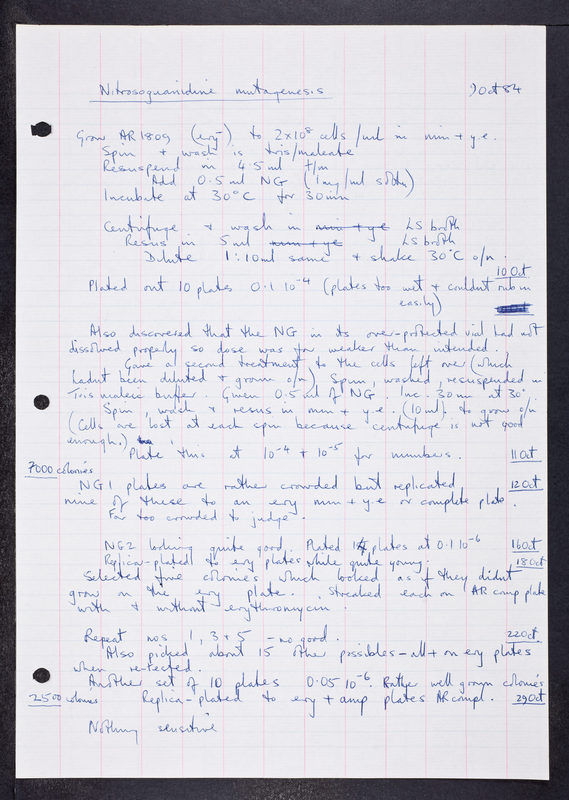 Nitrosoguanidine mutagenesis 9 Oct 84
Grow AR1809 (ery-) to 2x10⁸ cells/ml in min + y.e.
Spin + wash is tris/maleate
Resuspend in 4.5ml t/m
Add 0.5 ml NG (1mg/ml soltn)
Incubate at 30°C for 30min
Centrifuge + wash in min + ye LS broth
Resus in 5ml min + ye LS broth
Dilute 1:10ml same + shake 30°C o/n.
10 Oct
Plated out 10 plates 0.1 10⁻⁴ (plates too wet + couldnt rub in
easily)
Also discovered that the NG in its over-protected vial had not
dissolved properly so dose was far weaker than intended.
Gave a second treatment to the cells left over (which
hadnt been diluted + grown o/n). Spun, washed, resuspended in
Tris maleic buffer. Given 0.5ml of NG. Inc. 30min at 30°.
Spin, wash + resus in min + y.e. (10ml) to grow o/n
(Cells are lost at each spin because centrifuge is not good
enough.)
Plate this at 10⁻⁴ + 10⁻⁵ for numbers. 11 Oct
7000 colonies
NG1 plates are rather crowded but replicated 12 Oct
nine of these to an ery min + y.e or complete plate.
Far too crowded to judge.
NG2 looking quite good. Plated 14 plates at 0.1 10⁻⁶ 16 Oct
Replica-plated to ery plates while quite young. 18 Oct
Selected five colonies which looked as if they didnt
grow on the ery plate. Streaked each on AR comp plate
with + without erythromycin.
Repeat nos 1, 3 + 5 - no good. 22 Oct.
Also picked about 15 other possibles - all + on ery plates
when re-tested.
Another set of 10 plates 0.05 10⁻⁶. Rather well grown colonies
2500 colonies Replica-plated to ery + amp plates AR compl. 29 Oct
Nothing sensitive